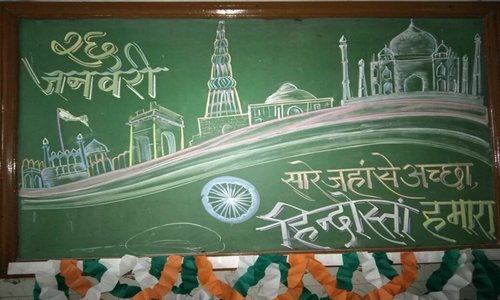 २६
जनवरी
सारे जहां से अच्छा,
हिन्दोस्तां हमारा